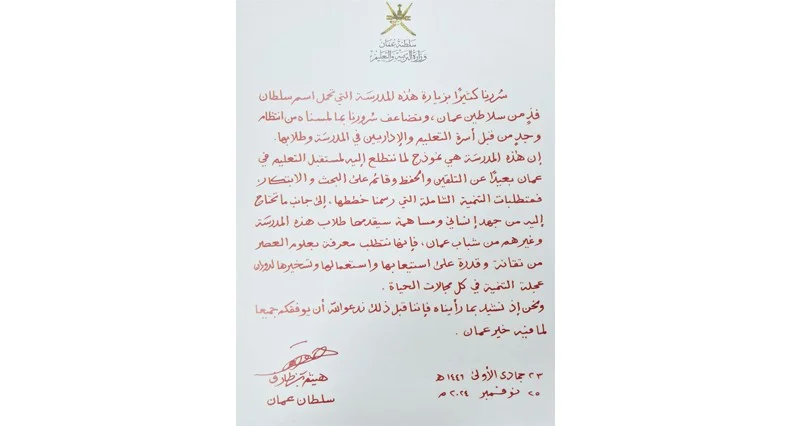 سلطنة عُمان
وزارة التربية والتعليم
سُررنا كثيرًا بزيارة هٰذه المدرسة التي تحمل اسم سلطان
فذٍ من سلاطين عمان، وتضاعف سرورنا بما لمسناه من انتظام
وجدٍ من قبل أسرة التعليم والإداريين في المدرسة وطلابها.
إن هٰذه المدرسة هي نموذج لما نتطلع إليه لمستقبل التعليم في
عمان بعيدًا عن التلقين والحفظ وقائم على البحث والابتكار،
فمتطلبات التنمية الشاملة التي رسمنا خططها، إلى جانب ما تحتاج
إليه من جهد إنساني ومساهمة سيقدمها طلاب هذه المدرسة
وغيرهم من شباب عمان، فإنها تتطلب معرفة بعلوم العصر
من تقانة وقدرة على استيعابها واستعمالها وتسخيرها لدوران
عجلة التنمية في كل مجالات الحياة.
ونحن إذ نشيد بما رأيناه فإننا قبل ذلك ندعو الله أن يوفقكم جميعا
لما فيه خير عمان.
هيثم بن طارق
سلطان عمان
٢٣ جمادى الأولى ١٤٤٦ هـ
٢٥ نوفمبر ٢٠٢٤ م